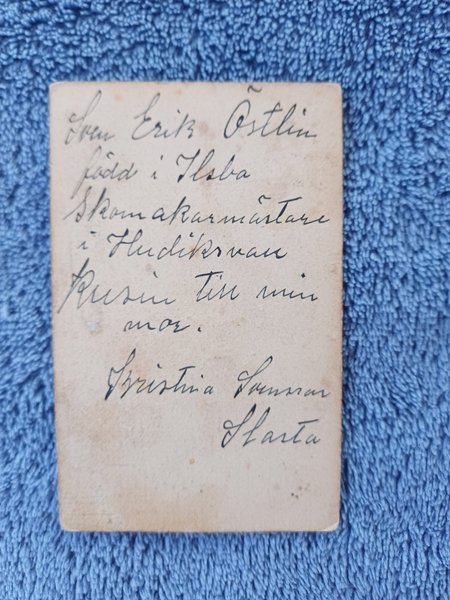 Sven Erik Östlin
född i Ilsbo
Skomakarmästare
i Hudiksvall
Kusin till min
mor.
Kristina Svensson
Slasta